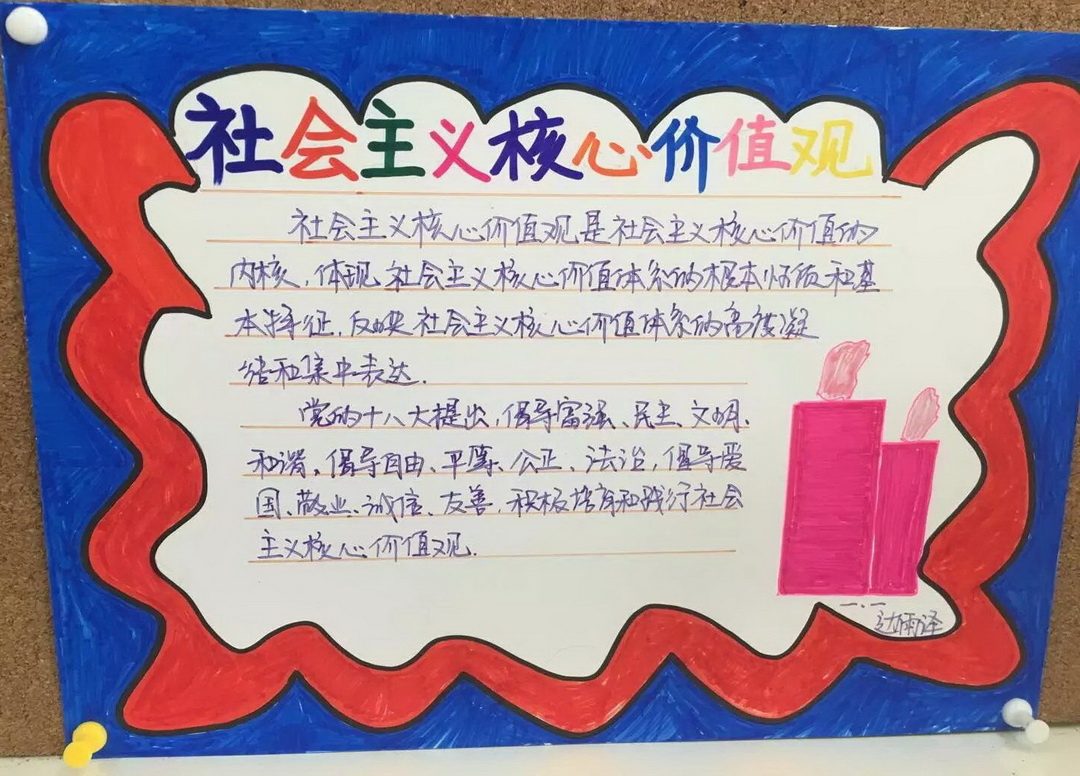 社会主义核心价值观
社会主义核心价值观是社会主义核心价值的
内核，体现社会主义核心价值体系的根本性质和基
本特征，反映社会主义核心价值体系的高度凝
结和集中表达．
党的十八大提出，倡导富强、民主、文明、
和谐，倡导自由、平等、公正、法治，倡导爱
国、敬业、诚信、友善，积极培育和践行社会
主义核心价值观．
一．一
达雨译